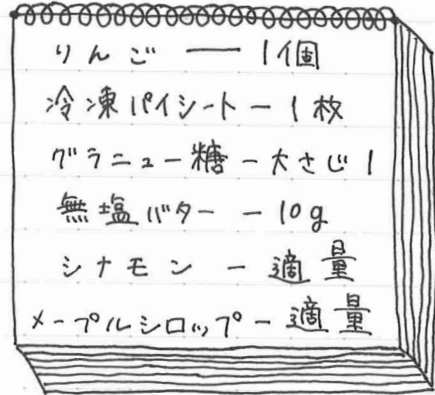 りんご ― 1個
冷凍パイシート ― 1枚
グラニュー糖 ― 大さじ1
無塩バター ― 10g
シナモン ― 適量
メープルシロップ ― 適量